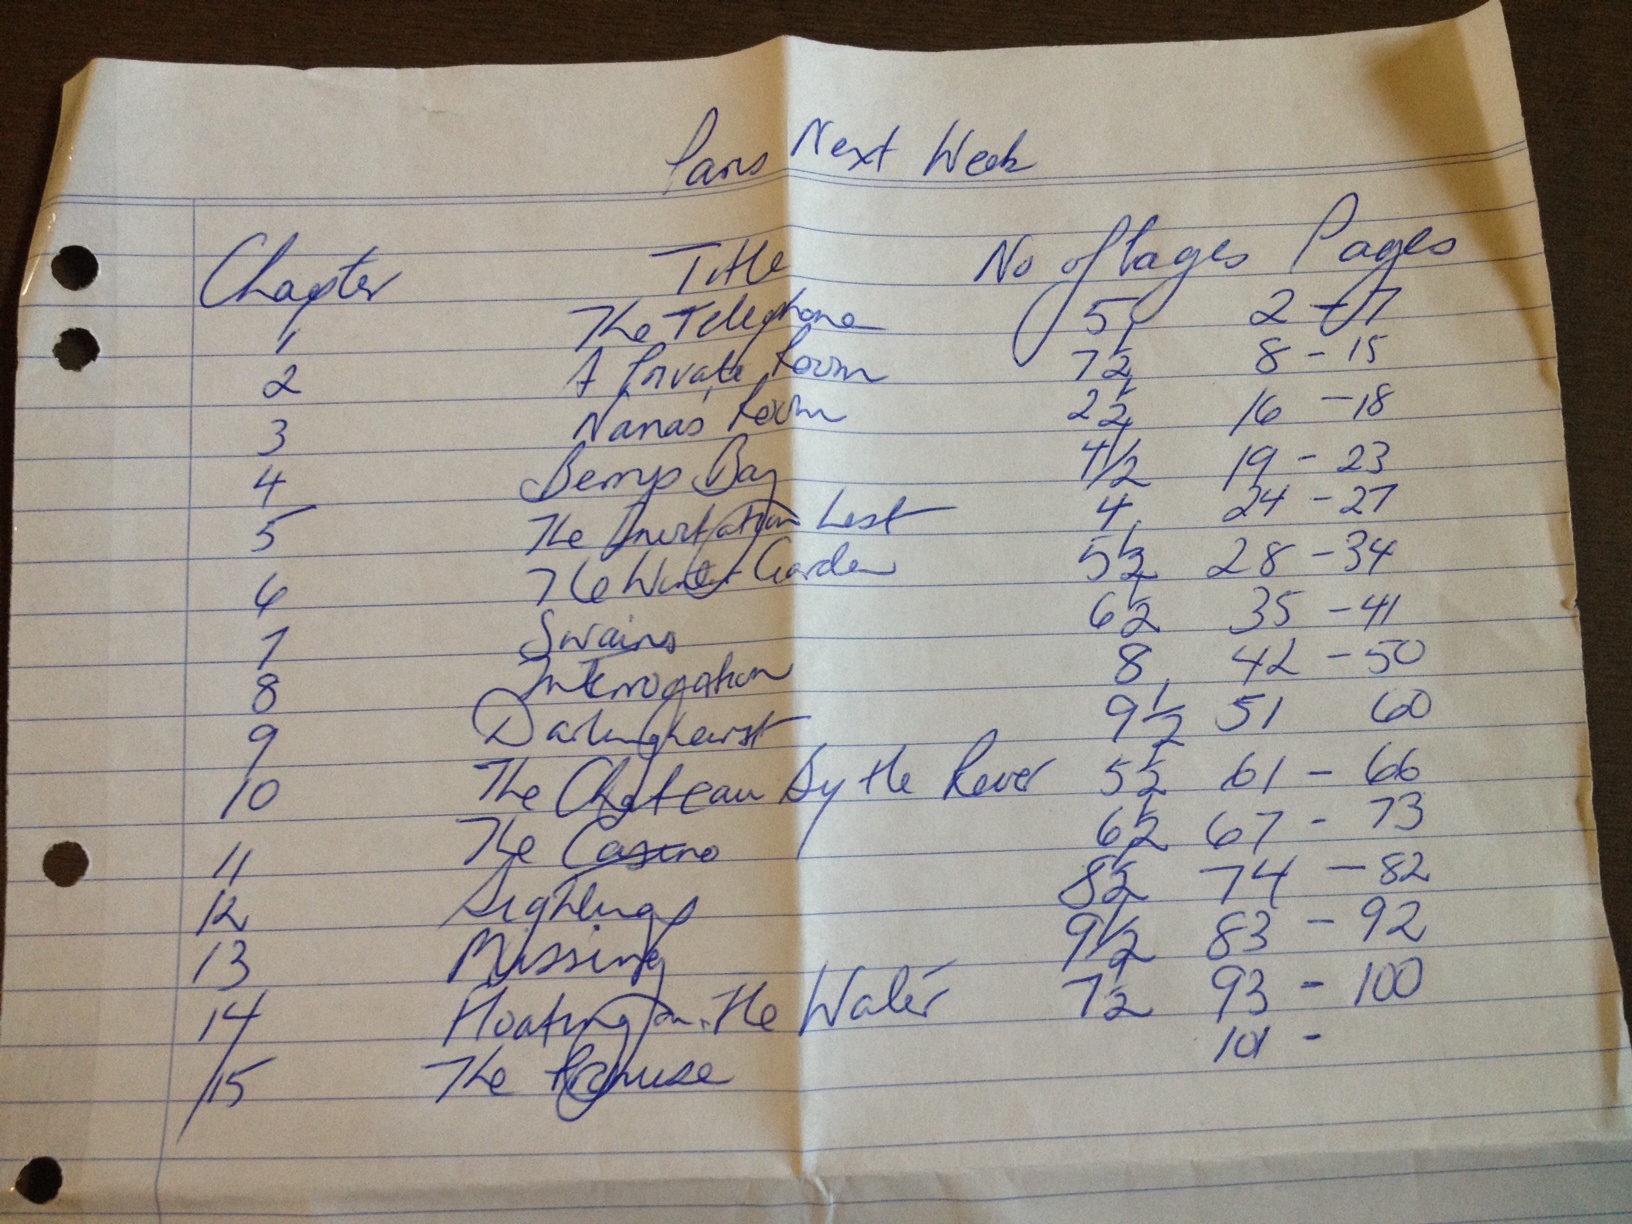 Paris Next Week
Chapter Title No of Pages Pages
1 The Telephone 5 2 - 7
2 A Private Room 7 1/2 8 - 15
3 Nana's Room 2 1/2 16 - 18
4 Berrys Bay 4 1/2 19 - 23
5 The Invitation List 4 24 - 27
6 The Winter Garden 5 1/2 28 - 34
7 Swains 6 1/2 35 - 41
8 Interrogation 8 42 - 50
9 Darlinghurst 9 1/2 51 60
10 The Chateau by the River 5 1/2 61 - 66
11 The Casino 6 1/2 67 - 73
12 Sightings 8 1/2 74 - 82
13 Missing 9 1/2 83 - 92
14 Floating on the Water 7 1/2 93 - 100
15 The 101 -